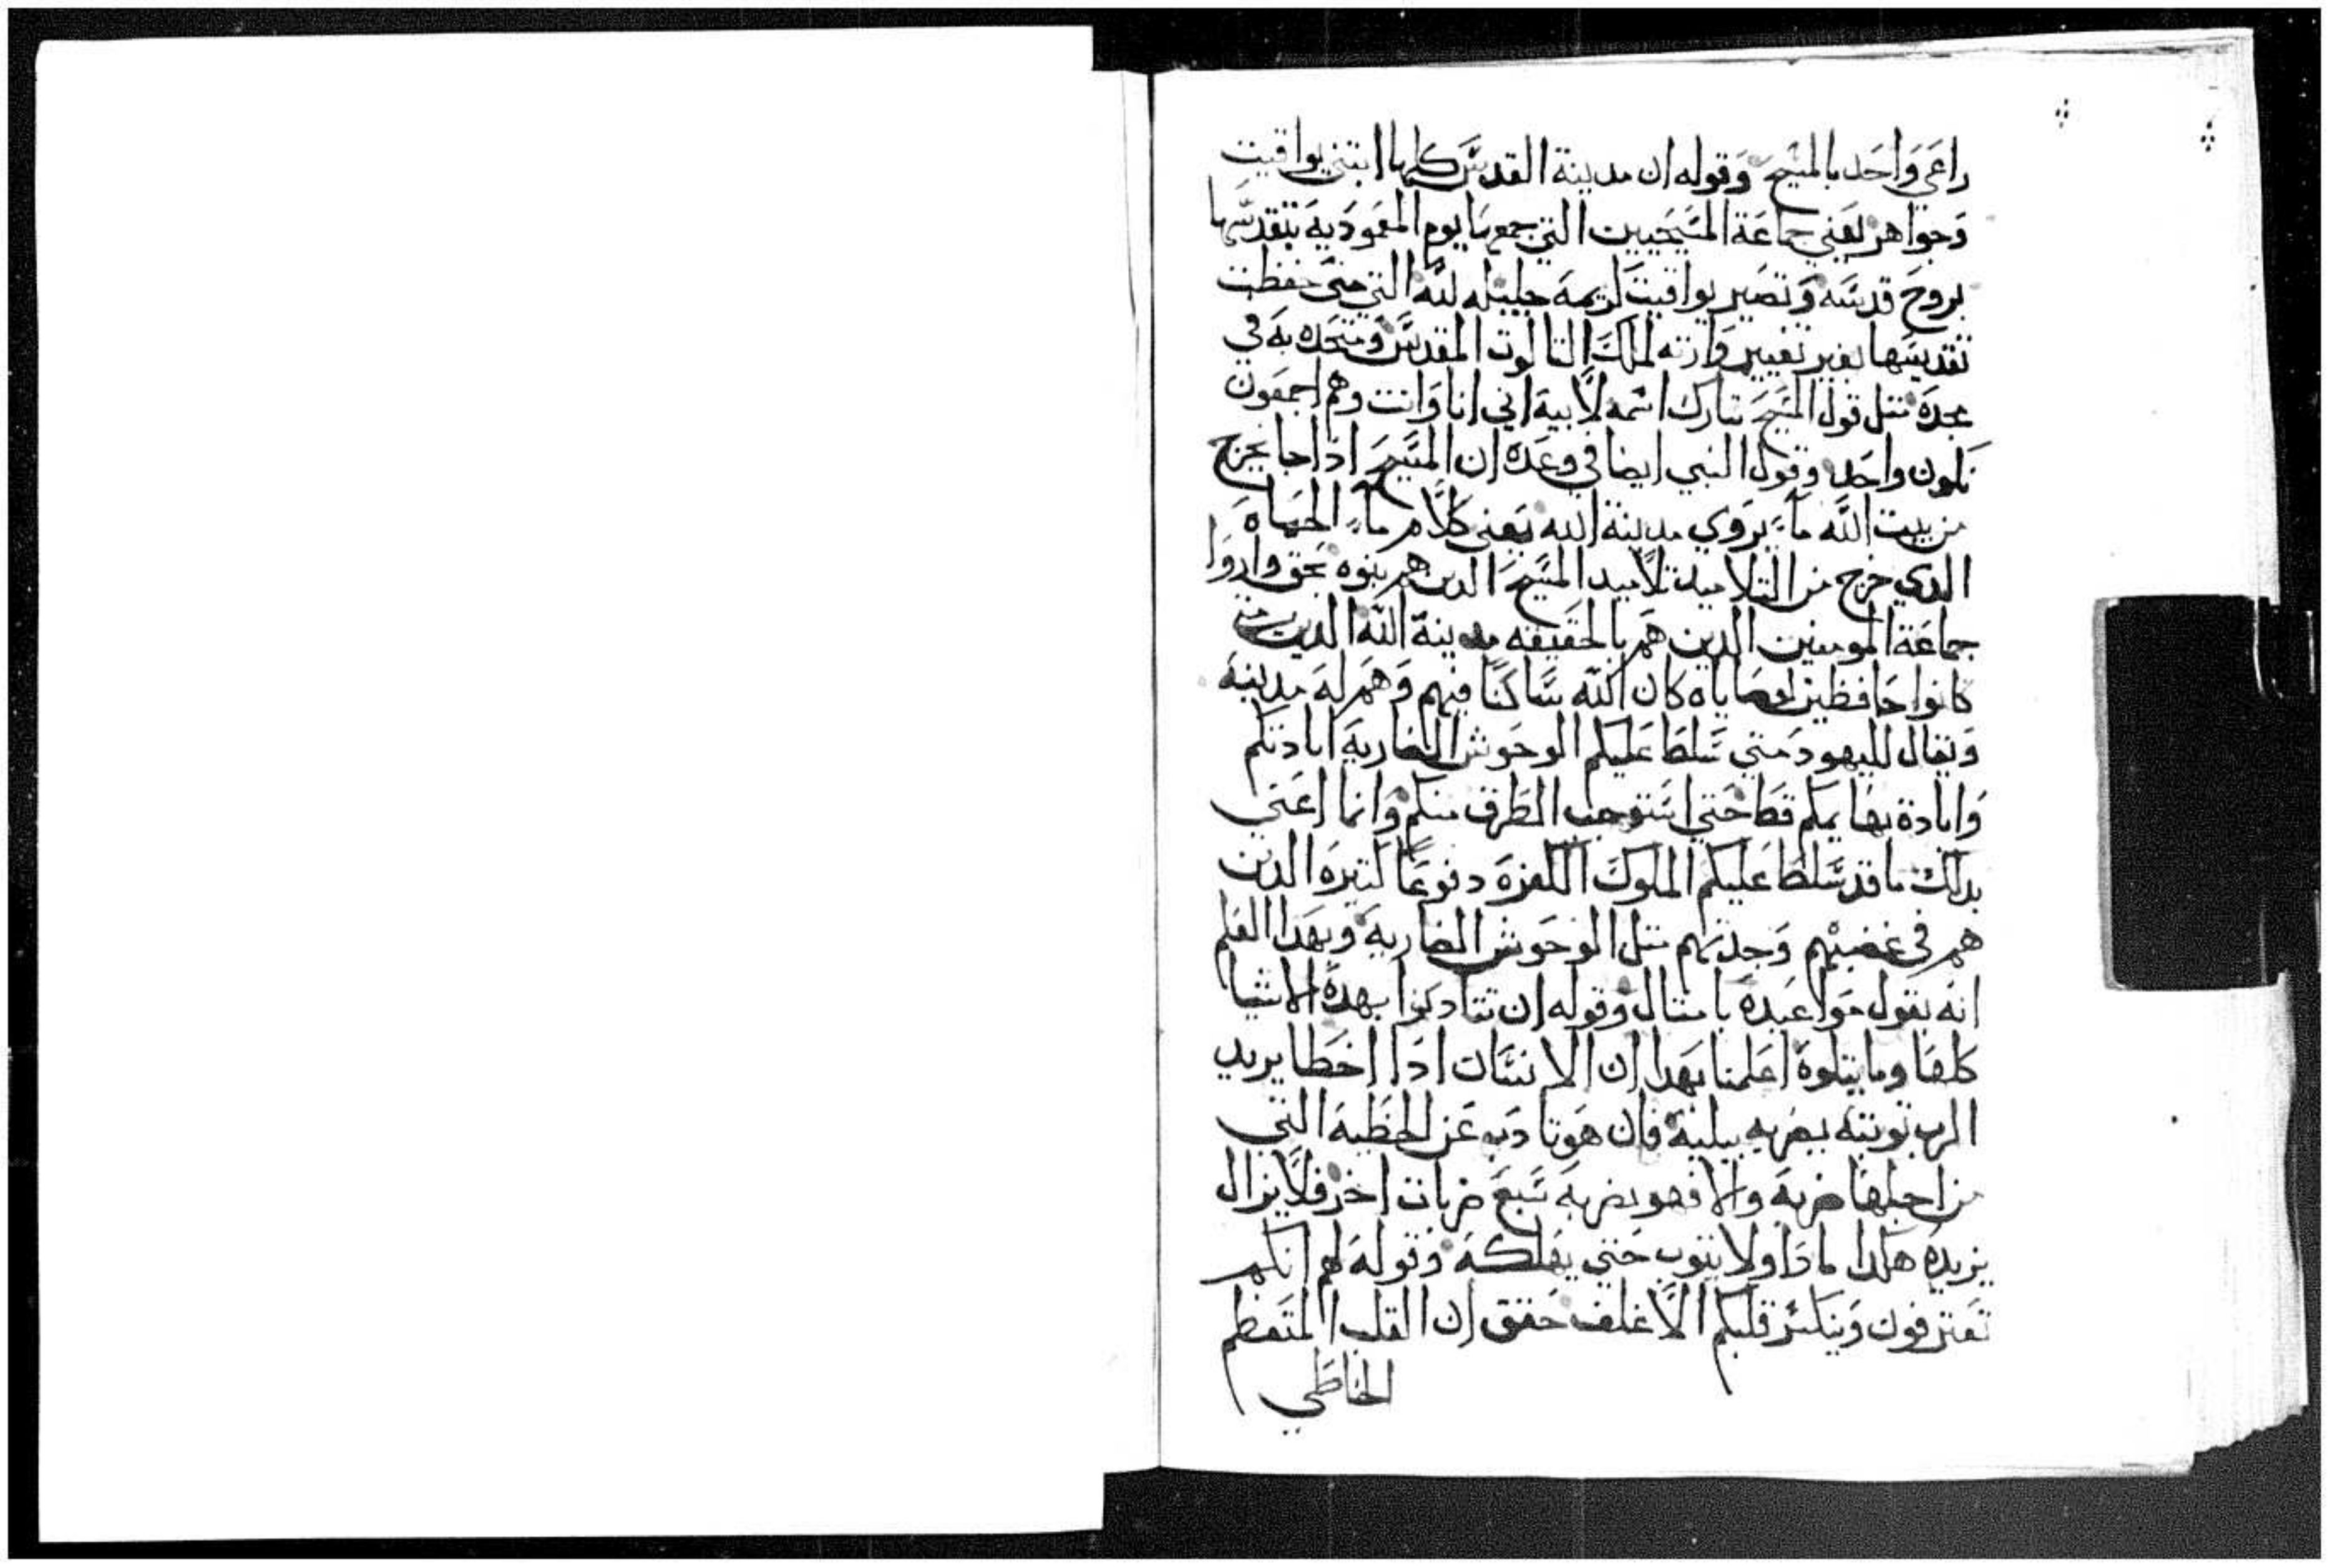 راعي واحد بالمسيح وقوله ان مدينة القدس كلها ابتني يواقيت
وجواهر يعني جماعة المسيحيين التي جمعها يوم المعمودية بتقدسها
بروح قدسه وتصير يواقيت كريمه جليله لله التي متى حفظت
تقديسها بغير تغيير وارته لملك التالوت المقدس ومتحده به في
مجده متل قول المسيح تبارك اسمه لابيه اني انا وانت وهم اجمعون
نكون واحد وقول النبي ايضا في وعده ان المسيح ادا جا يخرج
من بيت الله مآء يروي مدينة الله يعني كلام مآء الحياه
الدي خرج من التلاميد تلاميد المسيح الدين هم بنوه بحق واروا
جماعة المومنين الدين هم بالحقيقه مدينة الله الدين متى
كانوا حافظين لوصاياه كان الله ساكنا فيهم وهم له مدينه
ويقال لليهود متي سلط عليكم الوحوش الضاريه ابادتكم
وابادة بهايمكم قط حتي استوجب الطرق منكم وانما اعني
بدلك ما قد سلط عليكم الملوك الكفره دفوعا كتيره الدين
هم في غضبهم وحدتهم متل الوحوش الضاريه وبهدا الفلم
انه يقول مواعيده بامتال وقوله ان تتادبوا بهده الاشيا
كلها وما يتلوه اعلمنا بهدا ان الانسان ادا اخطا يريد
الرب توبته يضربه ببليه فان هو تادب عن الخطيه التي
من اجلها ضربه والا فهو يضربه سبع ضربات اخر فلا يزال
يزيده هكدا مادا ولا يتوب حتي يهلكه وقوله لهم انكم
تعترفون وينكسر قلبكم الاغلف حقق ان القلب المتعظم
الخاطي